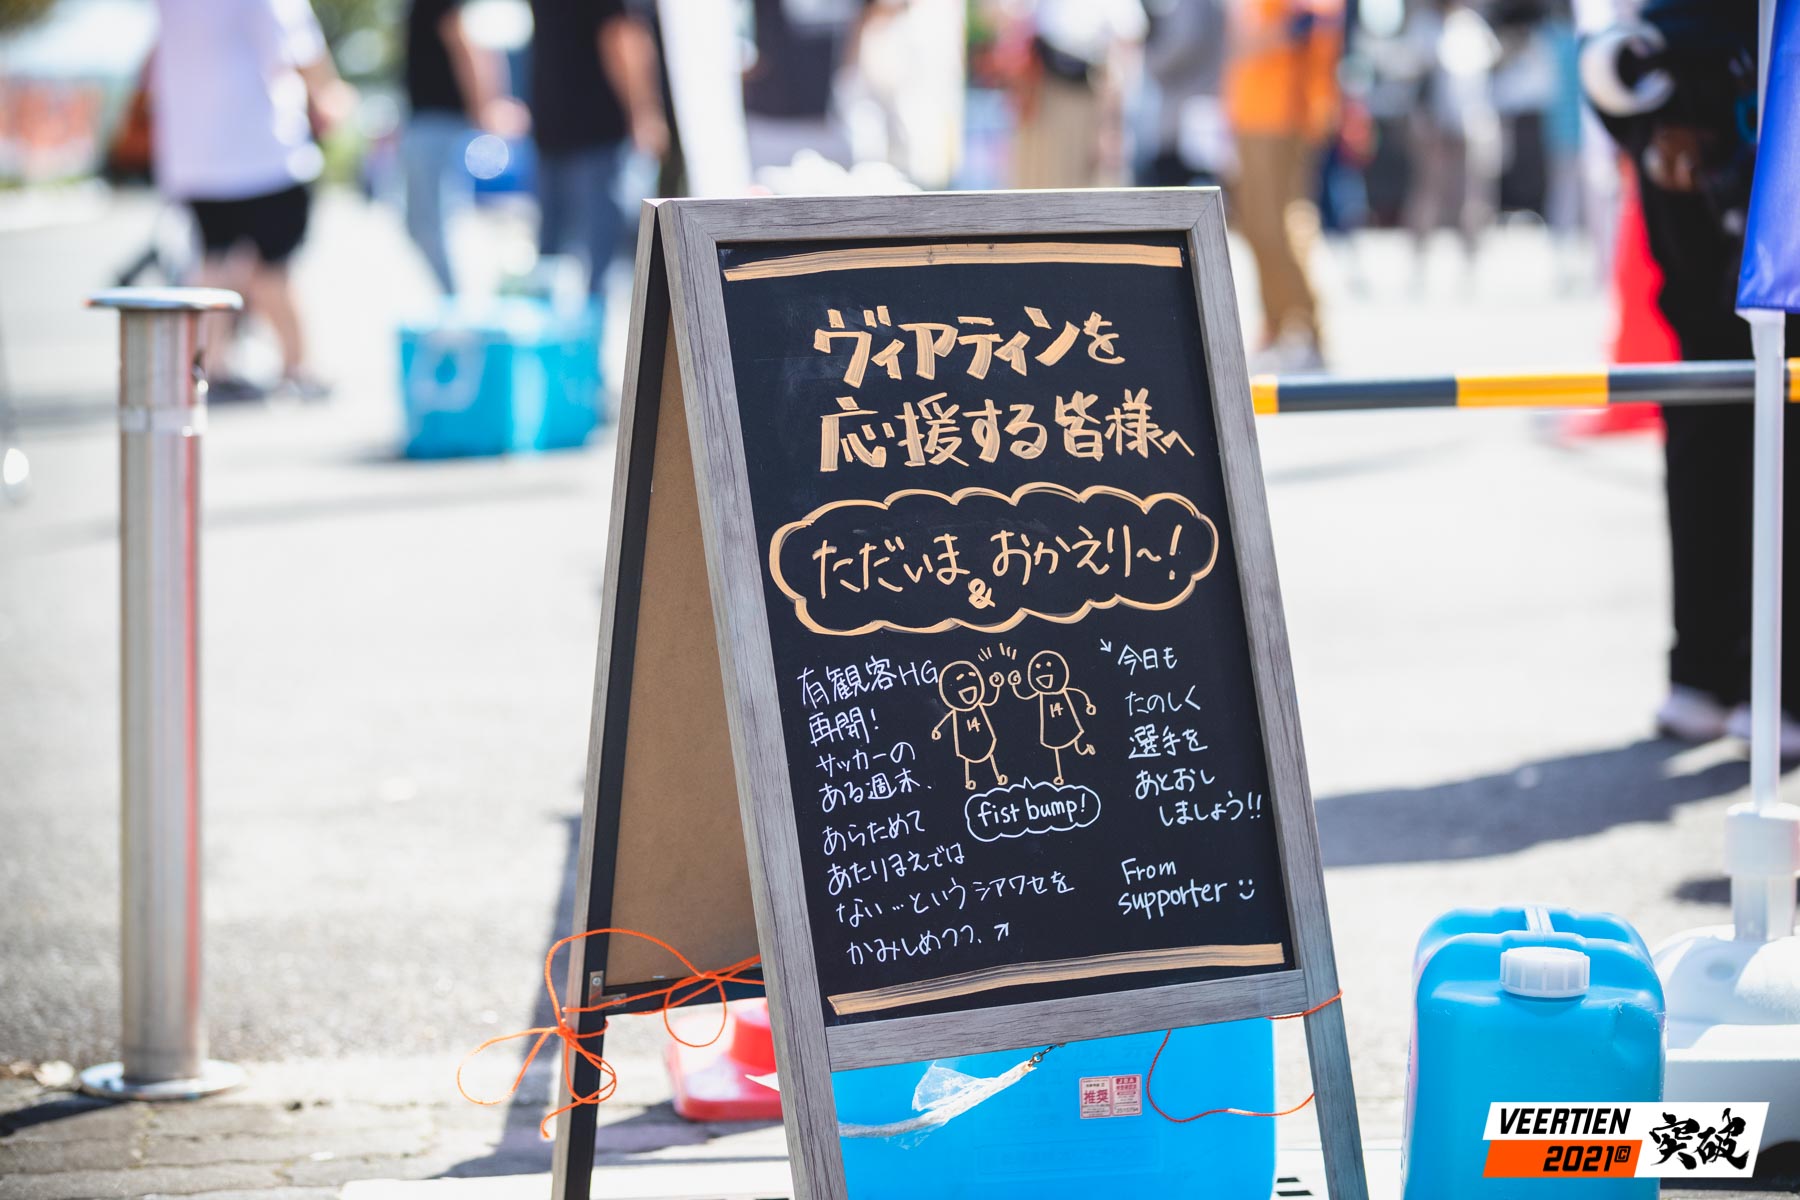 ヴィアティンを
応援する皆様へ
ただいま & おかえり〜!
有観客HG
再開!
サッカーの
ある週末、
あらためて
あたりまえでは
ない…というシアワセを
かみしめつつ、↗
14
14
fist bump!
↘今日も
たのしく
選手を
あとおし
しましょう!!
From
supporter
推奨
VEERTIEN
2021©
突破